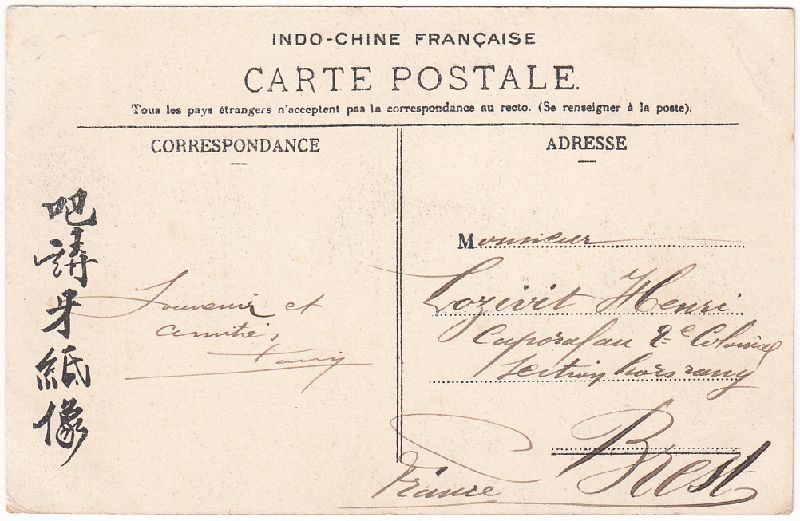 INDO-CHINE FRANÇAISE
CARTE POSTALE.
Tous les pays étrangers n'acceptent pas la correspondance au recto. (Se renseigner à la poste).
CORRESPONDANCE
吧講牙紙像
Souvenir et
amitiés
ADRESSE
Monsieur
Lozivit Henri
Caporal au 2e Colonial
Section hors rang
Brest
France